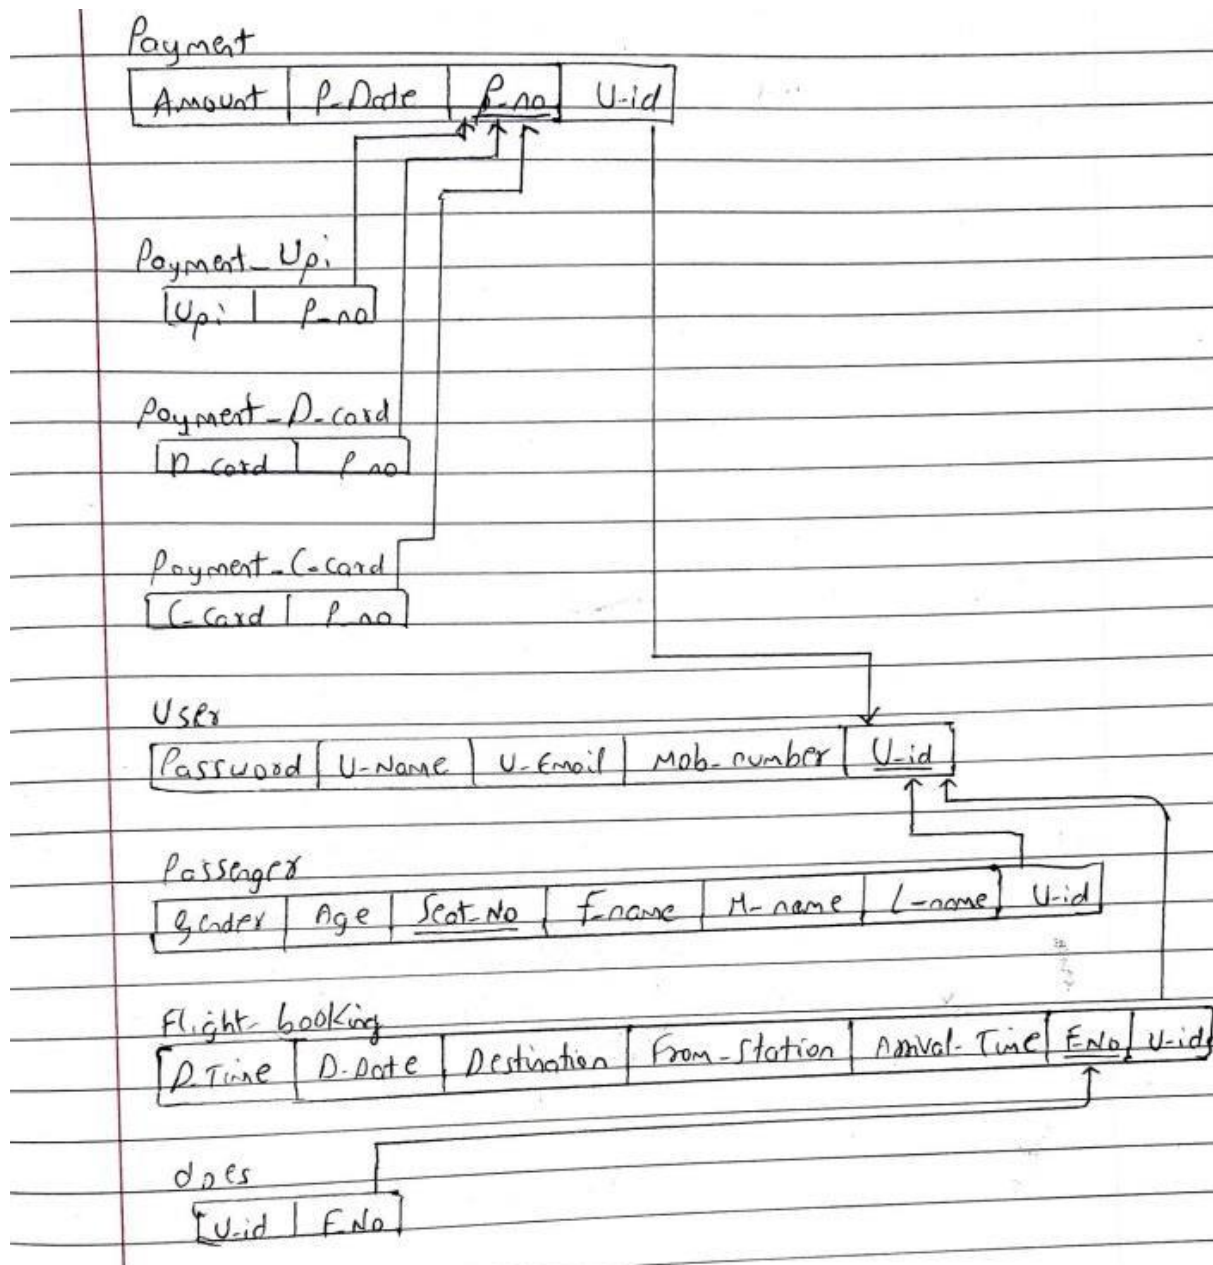 Payment
Amount P-Date P-no U-id
Payment-Upi
Upi P-no
Payment-D-card
D-card P-no
Payment-C-card
C-Card P-no
User
Password U-Name U-Email Mob-number U-id
Passenger
gender Age Seat-No F-name M-name L-name U-id
Flight-booking
D-Time D-Date Destination From-Station Arrival-Time F-No U-id
does
U-id F-No